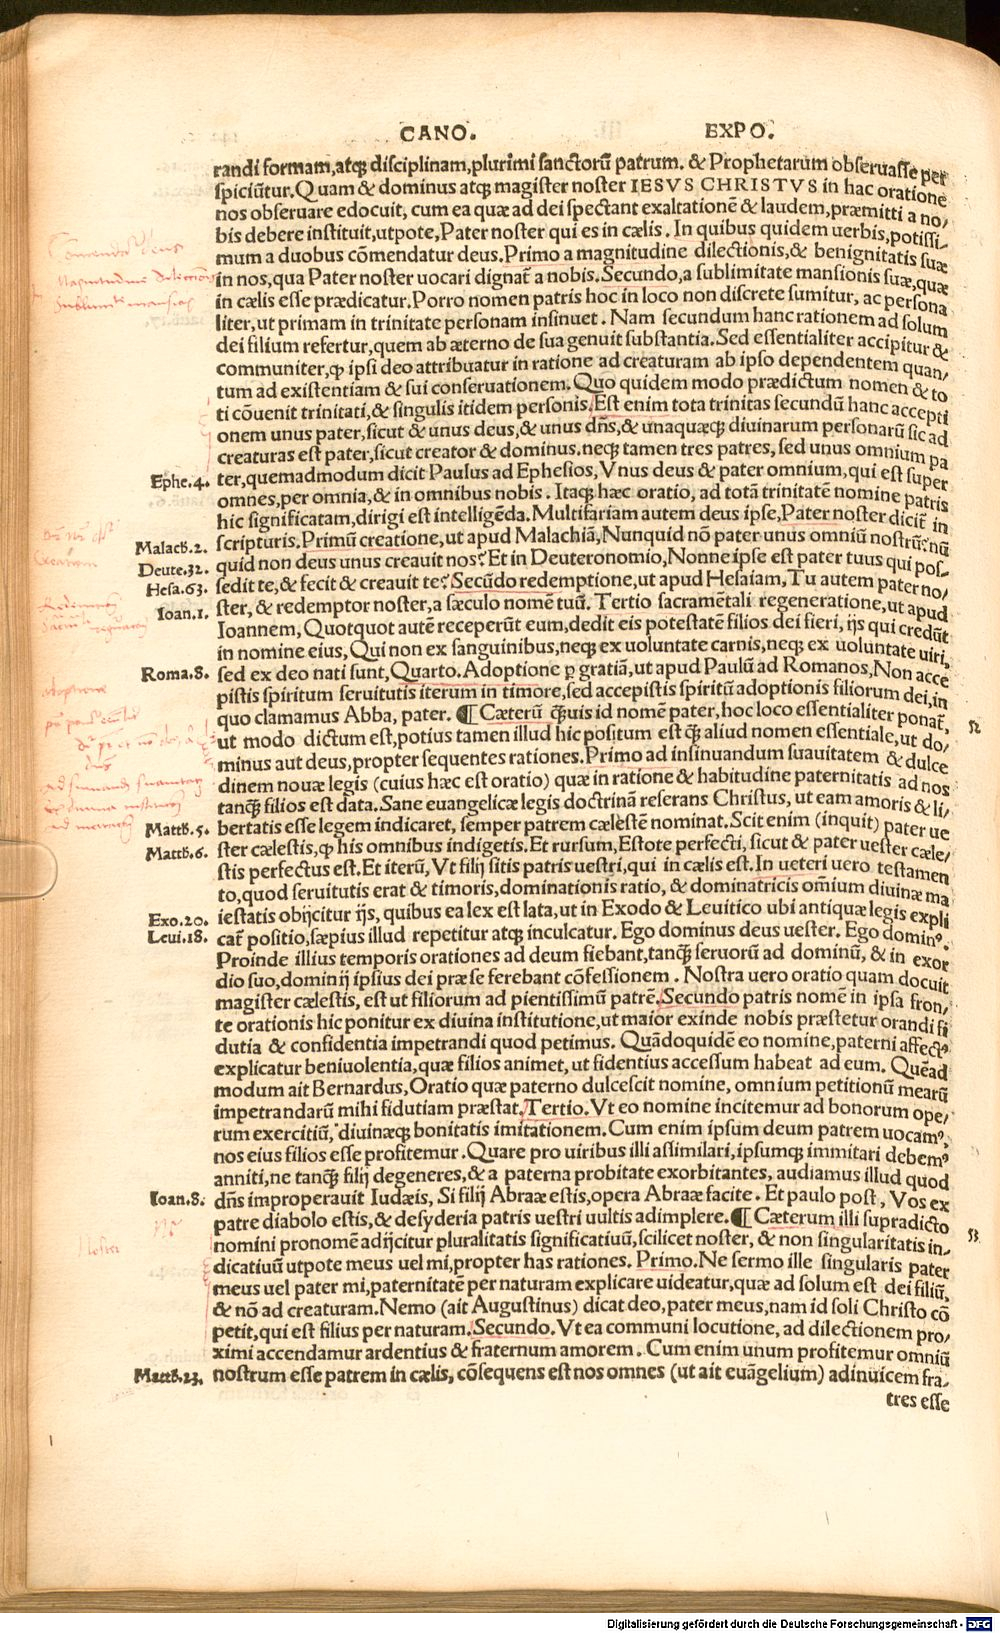 CANO. EXPO.
randi formam,atqꝫ disciplinam,plurimi sanctorū patrum. & Prophetarum obseruasse per
spiciūtur. Quam & dominus atqꝫ magister noster IESVS CHRISTVS in hac oratione
nos obseruare edocuit, cum ea quæ ad dei spectant exaltationē & laudem,præmitti a no/
bis debere instituit,utpote, Pater noster qui es in cælis. In quibus quidem uerbis,potissi-
mum a duobus cōmendatur deus. Primo a magnitudine dilectionis,& benignitatis suæ
in nos,qua Pater noster uocari dignat̄ a nobis. Secundo,a sublimitate mansionis suæ,quæ
in cælis esse prædicatur. Porro nomen patris hoc in loco non discrete sumitur, ac persona
liter,ut primam in trinitate personam insinuet. Nam secundum hanc rationem ad solum
dei filium refertur,quem ab æterno de sua genuit substantia. Sed essentialiter accipitur &
communiter,ꝙ ipsi deo attribuatur in ratione ad creaturam ab ipso dependentem quan/
tum ad existentiam & sui conseruationem. Quo quidem modo prædictum nomen & to
ti cōuenit trinitati,& singulis itidem personis. Est enim tota trinitas secundū hanc accepti
onem unus pater,sicut & unus deus,& unus dn̄s,& unaquæqꝫ diuinarum personarū sic ad
creaturas est pater,sicut creator & dominus.neqꝫ tamen tres patres, sed unus omnium pa
Ephe.4. ter,quemadmodum dicit Paulus ad Ephesios, Vnus deus & pater omnium,qui est super
omnes,per omnia,& in omnibus nobis. Itaqꝫ hæc oratio, ad totā trinitatē nomine patris
hic significatam,dirigi est intelligēda. Multifariam autem deus ipse, Pater noster dicit̄ in
Malach.2. scripturis. Primū creatione,ut apud Malachiā, Nunquid nō pater unus omniū nostrū? nū
quid non deus unus creauit nos? Et in Deuteronomio, Nonne ipse est pater tuus qui pos-
Deute.32. sedit te,& fecit & creauit te? Secūdo redemptione,ut apud Hesaiam, Tu autem pater no/
Hesa.63. ster, & redemptor noster,a sæculo nomē tuū. Tertio sacramētali regeneratione,ut apud
Ioan.1. Ioannem, Quotquot autē receperūt eum,dedit eis potestatē filios dei fieri, ijs qui credūt
in nomine eius, Qui non ex sanguinibus,neqꝫ ex uoluntate carnis,neqꝫ ex uoluntate uiri,
Roma.8. sed ex deo nati sunt, Quarto. Adoptione ꝑ gratiā,ut apud Paulū ad Romanos, Non acce
pistis spiritum seruitutis iterum in timore,sed accepistis spiritū adoptionis filiorum dei,in
quo clamamus Abba, pater. ¶ Cæterū ꝗuis id nomē pater,hoc loco essentialiter ponat̄, 52
ut modo dictum est,potius tamen illud hic positum est ꝗ̄ aliud nomen essentiale,ut do/
minus aut deus,propter sequentes rationes. Primo ad insinuandum suauitatem & dulce
dinem nouæ legis (cuius hæc est oratio) quæ in ratione & habitudine paternitatis ad nos
tanꝗ̄ filios est data. Sane euangelicæ legis doctrinā reserans Christus, ut eam amoris & li/
Matth.5. bertatis esse legem indicaret, semper patrem cælestē nominat. Scit enim (inquit) pater ue
Matth.6. ster cælestis,ꝙ his omnibus indigetis. Et rursum, Estote perfecti, sicut & pater uester cæle/
stis perfectus est. Et iterū, Vt filij sitis patris uestri,qui in cælis est. In ueteri uero testamen
to,quod seruitutis erat & timoris,dominationis ratio, & dominatricis om̄ium diuinæ ma
Exo.20. iestatis obijcitur ijs, quibus ea lex est lata,ut in Exodo & Leuitico ubi antiquæ legis expli
Leui.18. cat̄ positio,sæpius illud repetitur atqꝫ inculcatur. Ego dominus deus uester. Ego dominꝰ.
Proinde illius temporis orationes ad deum fiebant,tanꝗ̄ seruorū ad dominū, & in exor
dio suo,dominij ipsius dei præ se ferebant cōfessionem. Nostra uero oratio quam docuit
magister cælestis, est ut filiorum ad pientissimū patrē. Secundo patris nomē in ipsa fron,
te orationis hic ponitur ex diuina institutione,ut maior exinde nobis præstetur orandi fi
dutia & confidentia impetrandi quod petimus. Quādoquidē eo nomine,paterni affectꝰ
explicatur beniuolentia,quæ filios animet, ut fidentius accessum habeat ad eum. Quēad
modum ait Bernardus, Oratio quæ paterno dulcescit nomine, omnium petitionū mearū
impetrandarū mihi fidutiam præstat. Tertio. Vt eo nomine incitemur ad bonorum ope/
rum exercitiū, diuinæqꝫ bonitatis imitationem. Cum enim ipsum deum patrem uocamꝰ,
nos eius filios esse profitemur. Quare pro uiribus illi assimilari,ipsumqꝫ immitari debemꝰ
anniti,ne tanꝗ̄ filij degeneres,& a paterna probitate exorbitantes, audiamus illud quod
Ioan.8. dn̄s improperauit Iudæis, Si filij Abraæ estis,opera Abraæ facite. Et paulo post, Vos ex
patre diabolo estis,& desyderia patris uestri uultis adimplere. ¶ Cæterum illi supradicto
nomini pronomē adijcitur pluralitatis significatiuū,scilicet noster, & non singularitatis in- 53
dicatiuū utpote meus uel mi,propter has rationes. Primo. Ne sermo ille singularis pater
meus uel pater mi,paternitatē per naturam explicare uideatur,quæ ad solum est dei filiū,
& nō ad creaturam. Nemo (ait Augustinus) dicat deo,pater meus,nam id soli Christo cō
petit,qui est filius per naturam. Secundo. Vt ea communi locutione, ad dilectionem pro/
ximi accendamur ardentius & fraternum amorem. Cum enim unum profitemur omniū
Matth.23. nostrum esse patrem in cælis, cōsequens est nos omnes (ut ait euāgelium) adinuicem fra-
tres esse
Noster
Digitalisierung gefördert durch die Deutsche Forschungsgemeinschaft - DFG